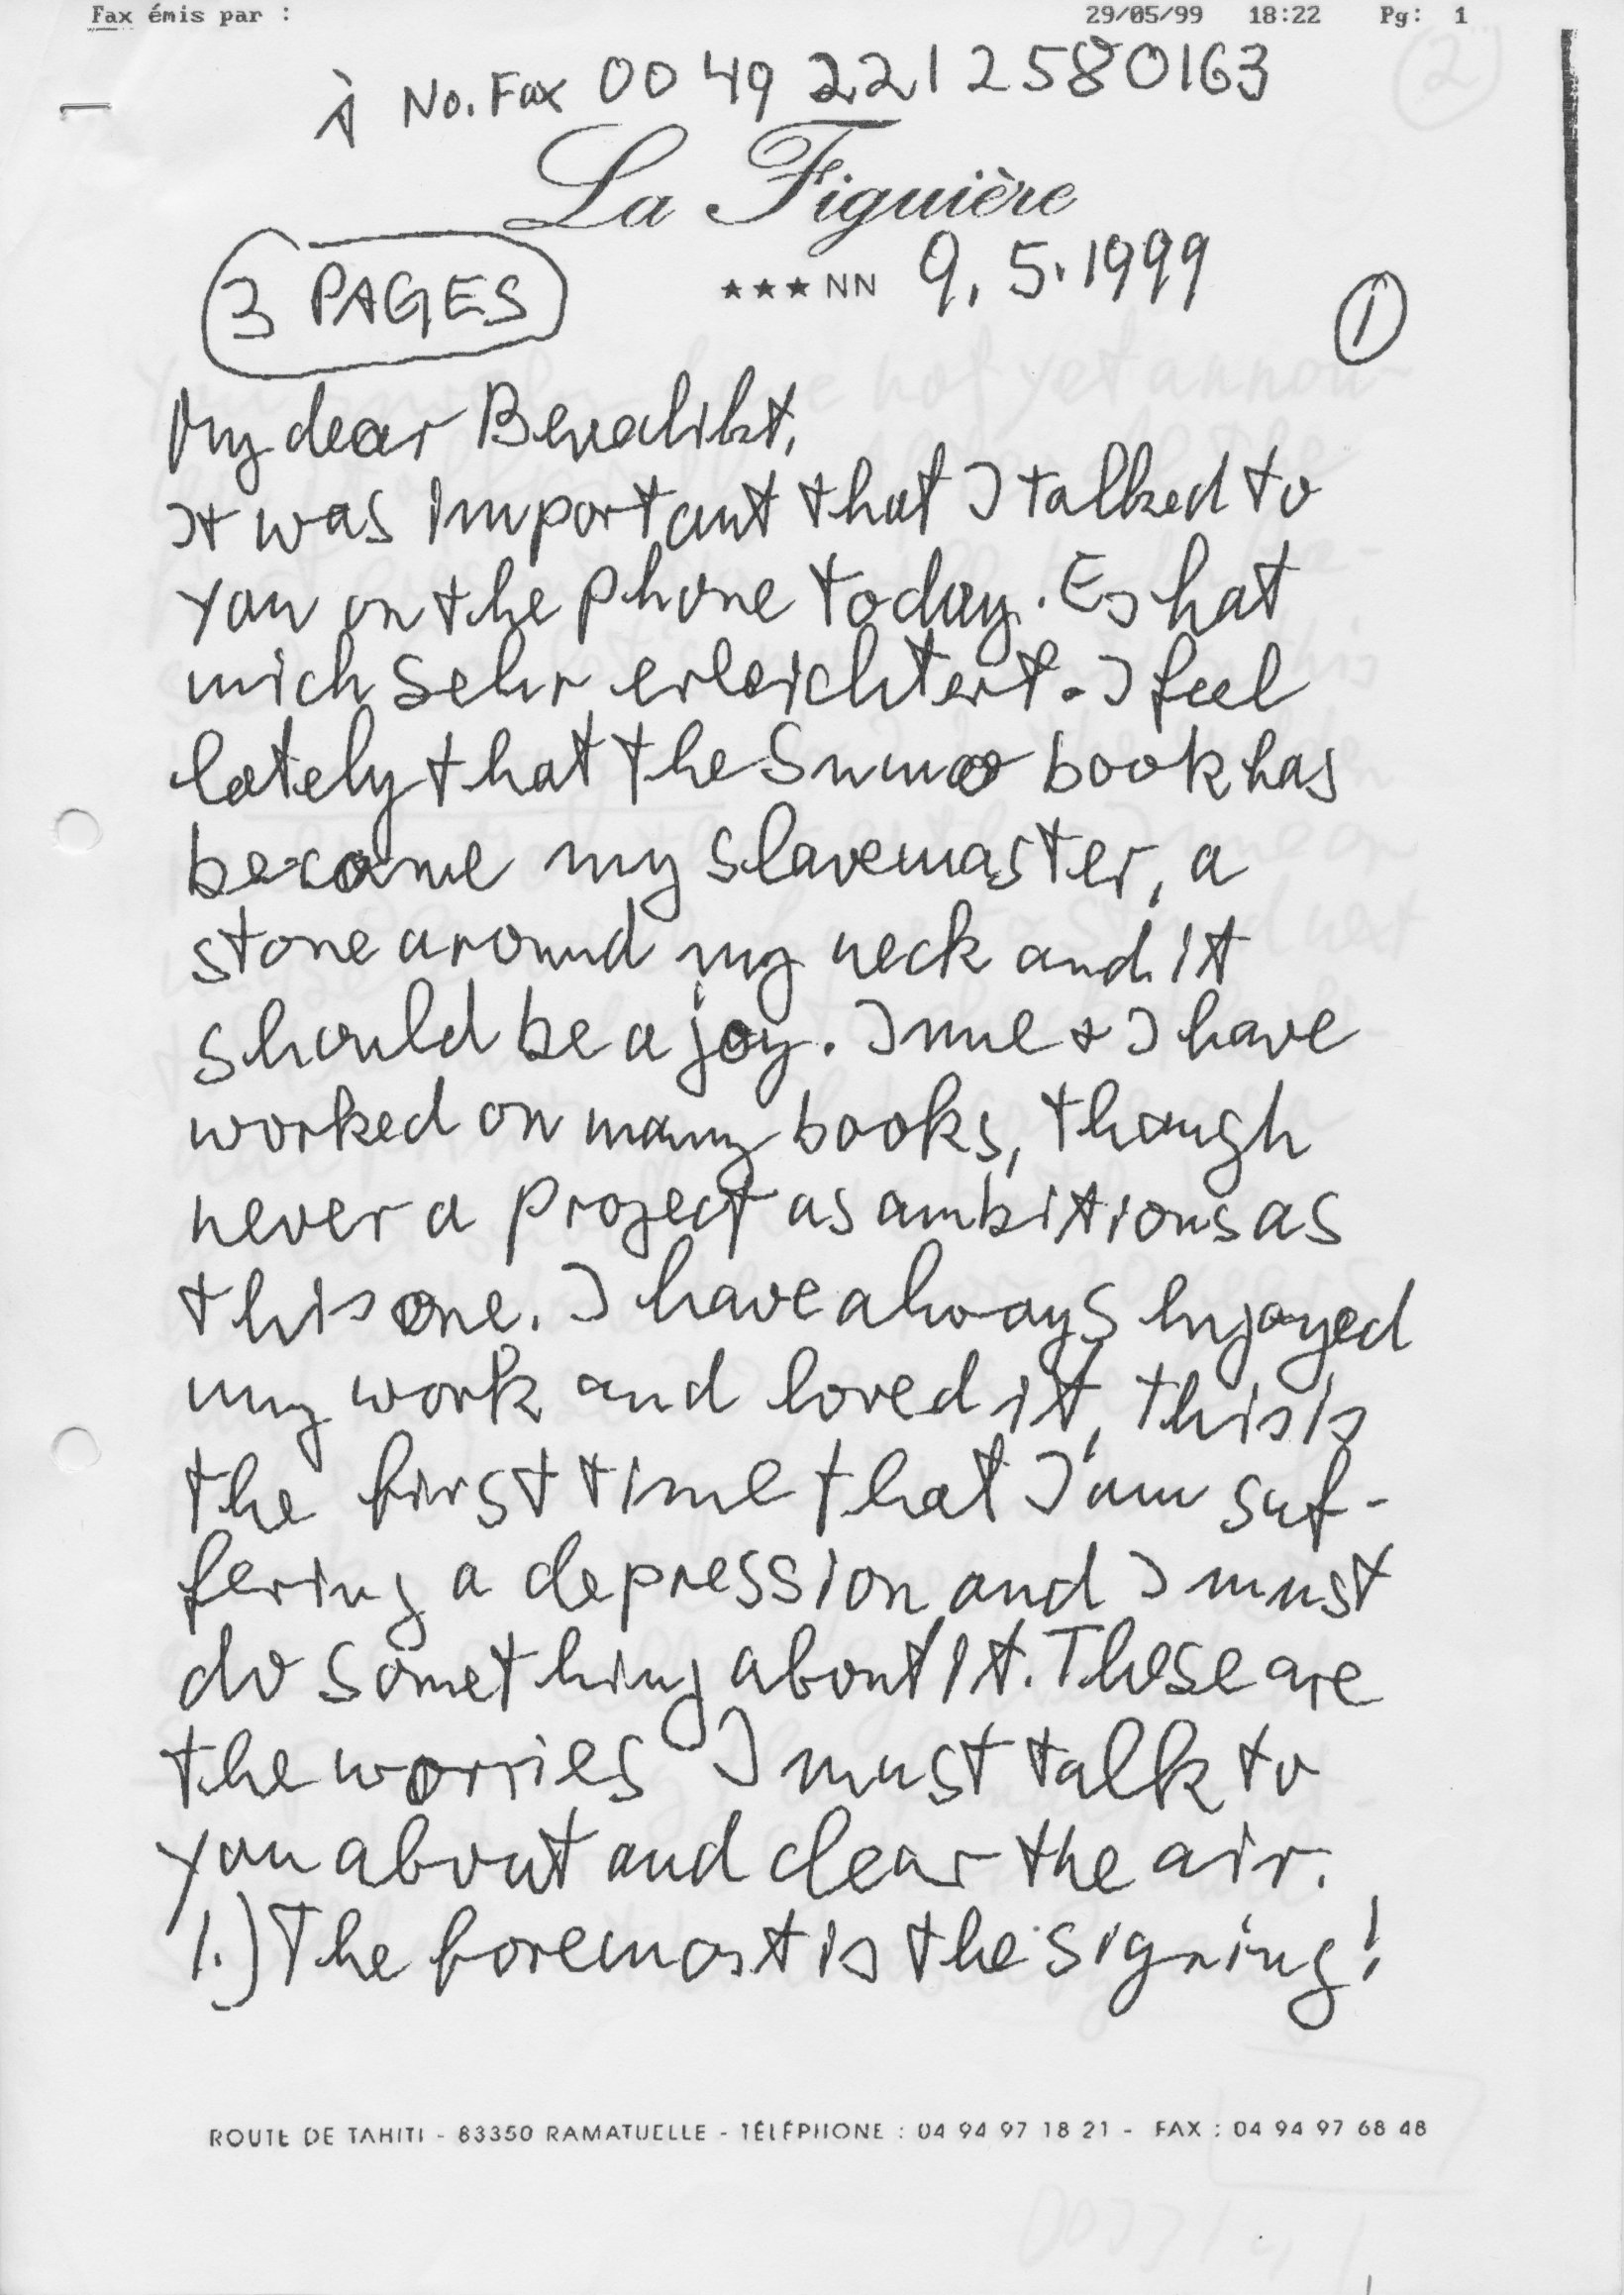 Fax émis par : 29/05/99 18:22 Pg: 1
2
À No. Fax 00 49 221 2580163
La Figuière
3 PAGES
★★★NN 9.5.1999
1
My dear Benedikt,
It was important that I talked to
you on the phone today. Es hat
mich sehr erleichtert. I feel
lately that the Sumo book has
become my slavemaster, a
stone around my neck and it
should be a joy. June + I have
worked on many books, though
never a project as ambitious as
this one. I have always enjoyed
my work and loved it, this is
the first time that I am suf-
fering a depression and I must
do something about it. These are
the worries I must talk to
you about and clear the air.
1.) The foremost is the signing!
ROUTE DE TAHITI - 83350 RAMATUELLE - TÉLÉPHONE : 04 94 97 18 21 - FAX : 04 94 97 68 48